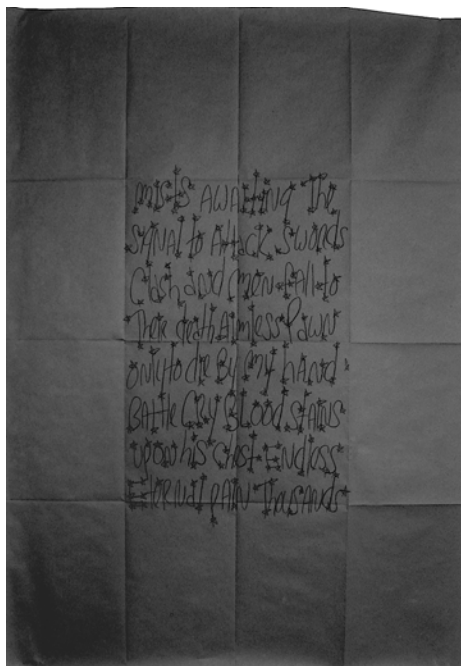 mists AWAiting The
SigNAl to Attack Swords
Clash and men fall to
There death Aimless Pawn
only to die By my hAND
BAttle CRy Blood stains
upon his chest Endless
EterNAl pAiN Thousands